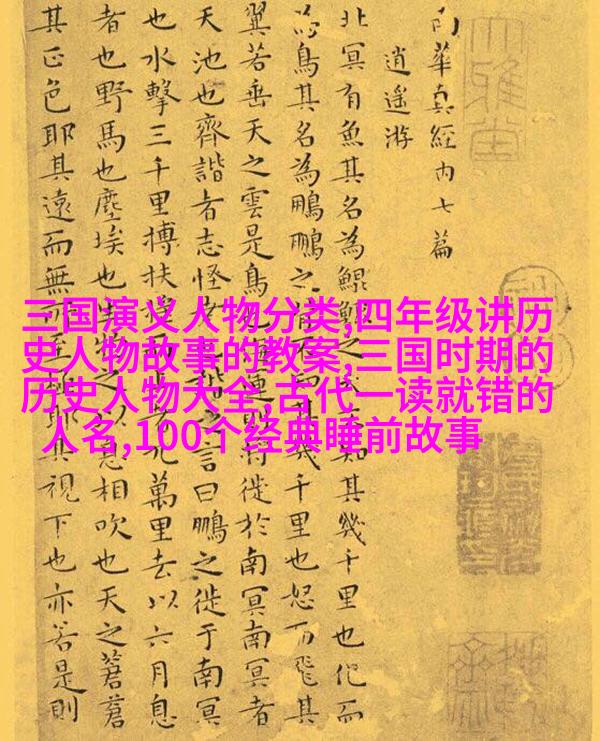 南華真經內七篇
逍遥游
北冥有魚其名為鯤鯤之大不知其幾千里也化而
為鳥其名為鵬鵬之背不知其幾千里也怒而飛其
翼若垂天之雲是鳥也海運則將徙於南冥南冥者
天池也齊諧者志怪者也諧之言曰鵬之徙于南冥
也水擊三千里摶扶搖而上者九萬里去以六月息
者也野馬也塵埃也生物之以息相吹也天之蒼蒼
其正色耶其遠而無所至極耶其視下也亦若是則
大雅堂
三国演义人物分类,四年级讲历
史人物故事的教案,三国时期的
历史人物大全,古代一读就错的
人名,100个经典睡前故事